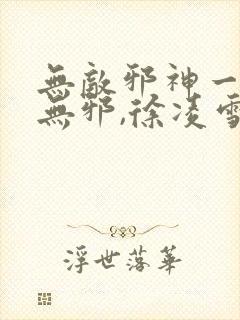 無敵邪神一
無邪,徐凌雪
浮世落華